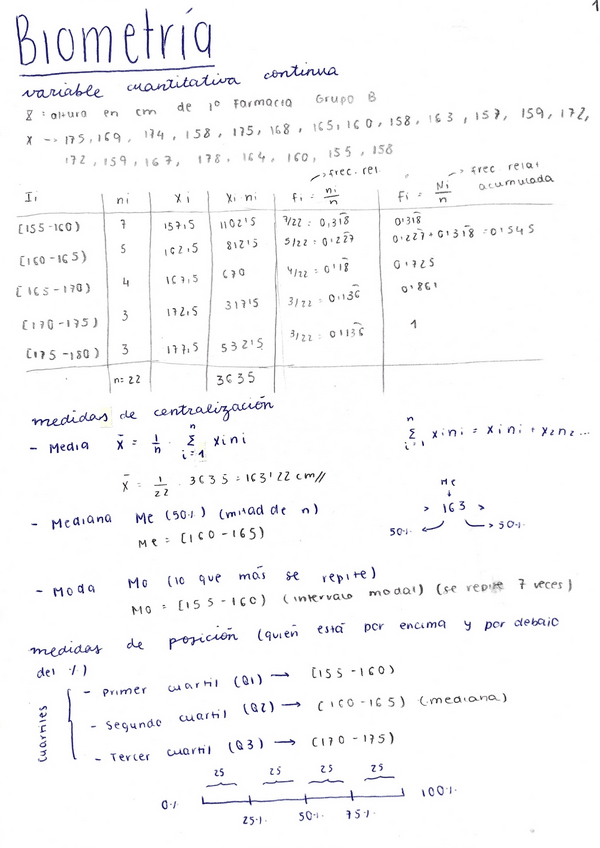 1
Biometría
variable cuantitativa continua
X : altura en cm de 1º Farmacia Grupo B
X → 175, 169, 174, 158, 175, 168, 165, 160, 158, 163, 157, 159, 172,
172, 159, 167, 178, 164, 160, 155, 158
→ frec. rel. → frec relat acumulada
Ii ni xi xi ni fi = ni/n Fi = Ni/n
[155-160) 7 157,5 1102'5 7/22 = 0,318 0'318
[160-165) 5 162,5 812'5 5/22 = 0'227 0'227 + 0'318 = 0'545
[165-170) 4 167,5 670 4/22 = 0'18 0'725
[170-175) 3 172,5 517'5 3/22 = 0'136 0'861
[175-180) 3 177,5 532'5 3/22 = 0'136 1
n=22 3635
medidas de centralización
- Media x̄ = 1/n · Σ xi ni n i=1
n Σ i=1 xi ni = x1 n1 + x2 n2 ...
x̄ = 1/22 · 3635 = 163'22 cm//
- Mediana Me (50%) (mitad de n)
Me = [160-165)
Me
> 163 >
50% ← → 50%
- Moda Mo (lo que más se repite)
Mo = [155-160) (intervalo modal) (se repite 7 veces)
medidas de posición (quién está por encima y por debajo
del %)
Cuartiles
- Primer cuartil (Q1) → [155-160)
- Segundo cuartil (Q2) → [160-165) (mediana)
- Tercer cuartil (Q3) → [170-175)
25 25 25 25
0% 100%
25% 50% 75%